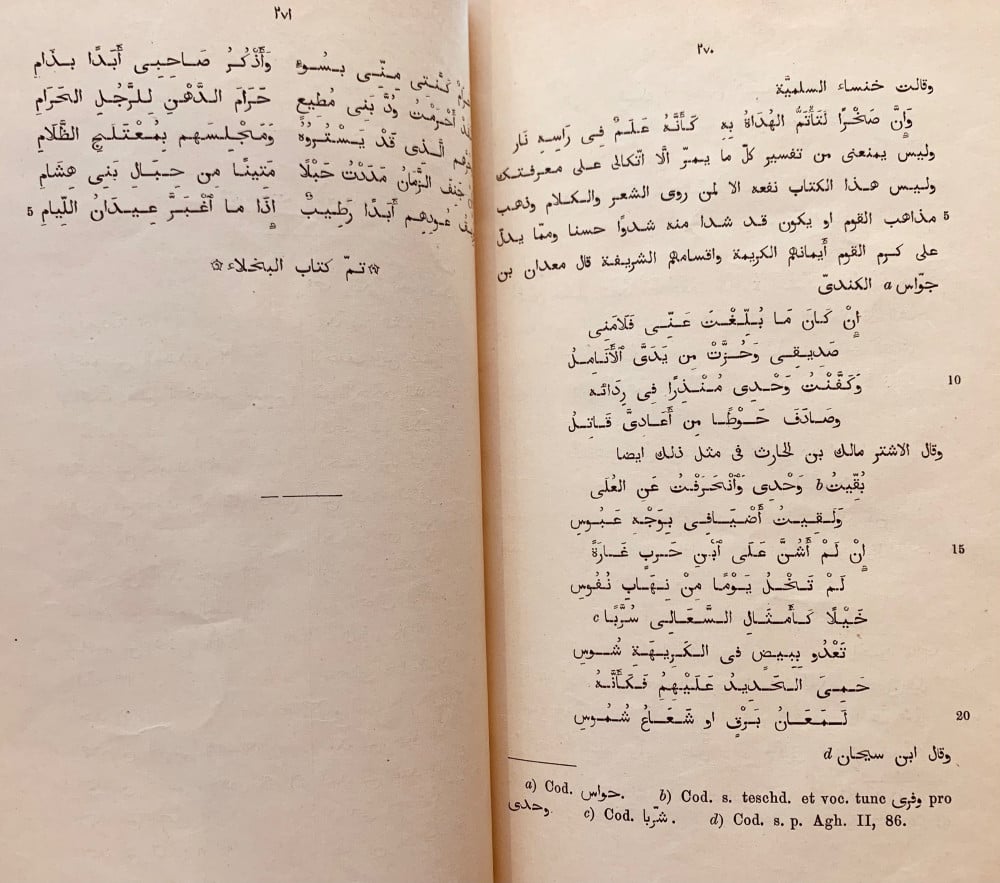 ٢٧٠
وقالت خنساء السلميَّة
وَإِنَّ صَخْرًا لَتَأْتَمُّ الهُدَاةُ بِهِ كَأَنَّهُ عَلَمٌ فِى رَاسِهِ نَار
وليس يمنعنى من تفسير كلّ ما يمرّ الّا اتّكالى على معرفتك
وليس هذا الكتاب نفعه الا لمن روى الشعر والكلام وذهب
5 مذاهب القوم او يكون قد شدا منه شدوًا حسنا وممّا يدلّ
على كرم القوم أَيمانهم الكريمة واقسامهم الشريفة قال معدان بن
جوّاس a الكندىّ
إِنْ كَانَ مَا بُلِّغْتَ عَنِّى فَلَامَنِى
صَدِيقِى وَحُزَّتْ مِن يَدَىَّ ٱلْأَنَامِلُ
وَكَفَّنْتُ وَحْدِى مُنْذِرًا فِى رِدَائه 10
وصَادَفَ حَوْطًا مِن أَعَادِىَّ قَاتِلُ
وقال الاشتر مالك بن الحارث فى مثل ذلك ايضا
بُقِّيتُ b وَحْدِى وَٱنْحَرَفْتُ عَنِ العُلَى
وَلَقِيتُ أَضْيَافِى بِوَجْهِ عَبُوسِ
إِنْ لَمْ أَشُنَّ عَلَى ٱبْنِ حَربٍ غَارَةً 15
لَمْ تَخْلُ يَوْمًا مِنْ نِهَابِ نُفُوسِ
خَيْلًا كَأَمْثَالِ السَّعَالِى سُزَّبًا c
تَعْدُو بِبِيضٍ فى الكَرِيهَةِ شُوسِ
حَمِىَ الحَدِيدُ عَلَيْهِمُ فَكَأَنَّهُ
لَمَعَانُ بَرْقٍ او شَعَاعُ شُمُوسِ 20
وقال ابن سيحان d
a) Cod. حواس. b) Cod. s. teschd. et voc. tunc وفرى pro
وحدى. c) Cod. شرّبا. d) Cod. s. p. Agh. II, 86.
٢٧١
كَنَّتى مِنّى بسُوءٍ وَأَذْكُرُ صَاحِبِى أَبَدًا بذَامِ
أَحْرَمْتُ وُدَّ بَنِى مُطيعٍ حَرَامَ الدَّهْنِ لِلرَّجُلِ الحَرَامِ
الَّذِى قَدْ يَسْتُرُوهُ وَمَجْلِسَهم بِمُعْتَلَجِ الظَّلَامِ
الزَّمَانُ مَدَدْتُ حَبْلًا مَتِينًا من حِبَالِ بَنِى هِشَامِ
عُودِهِم أَبَدًا رَطِيبٌ إِذَا ما ٱغْبَرَّ عِيدَانُ اللِّيَامِ 5
تمّ كتاب البخلاء